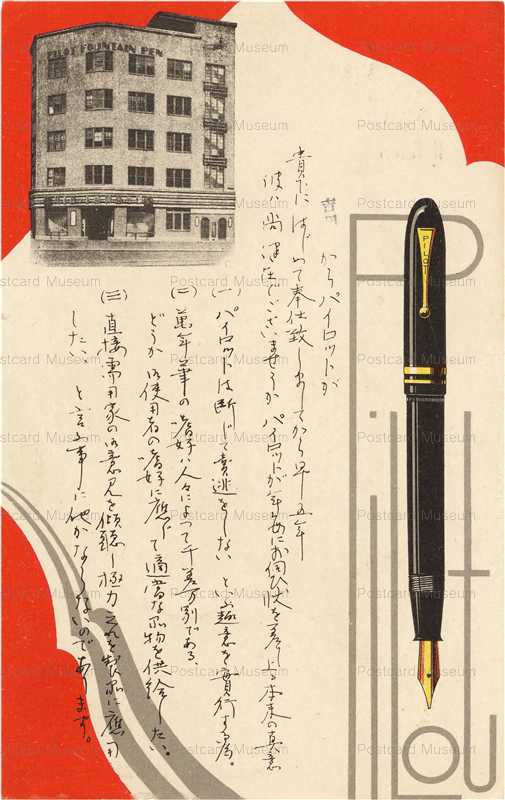 PILOT FOUNTAIN PEN
PILOT
からパイロットが
貴方にはじめて奉仕致しましてから早五年
彼ハ尚健在でございませうか パイロットが年毎にお伺ひ状を差し上る本来の真意
(一) パイロットは断じて売逃をしない といふ趣意を実行する為。
(二) 萬年筆の嗜好ハ人々によつて千差万別である、
どうか御使用者の嗜好に應じて適当な品物を供給したい。
(三) 直接需用家の御意見を傾聴し極力これを製品に應用
したい、と言ふ事に他かならないのであります。